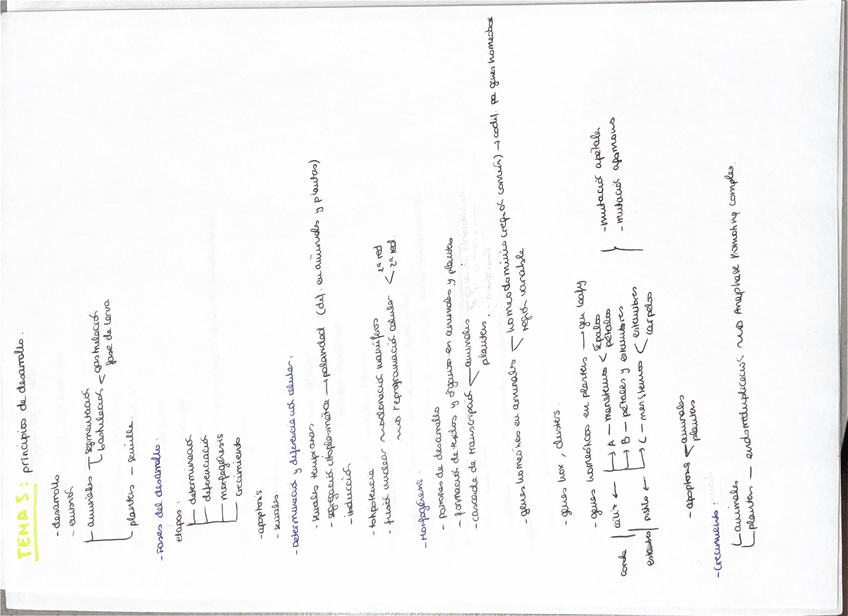 TEMA 5: principios de desarrollo.
- desarrollo
- embrión
animales segmentación
blastulación gastrulación
fase de larva
plantas - semilla
- Fases del desarrollo:
etapas: determinación
diferenciación
morfogénesis
crecimiento
- apoptosis
- señales
- Determinación y diferenciación celular:
- señales tempranas
- segregación citoplasmática → polaridad (dif. en animales y plantas)
- inducción
- totipotencia
- fusión nuclear clonación mamíferos
reprogramación celular 1ª red
2ª red.
- Morfogénesis:
- patrones de desarrollo
- formación de tejidos y órganos en animales y plantas
- cascada de transcripción animales
plantas.
- genes homeóticos en animales homeodominio (región común) → codif. por genes homeobox
región variable
- genes hox, clusters
- genes homeóticos en plantas → gen leafy
A - meristemos sépalos
pétalos
B - pétalos y estambres
C - meristemos estambres
carpelos
- mutació apétala
- mutació agamous
- apoptosis animales
plantas
- Crecimiento:
animales
plantas - endorreduplicació Anaphase Promoting complex.